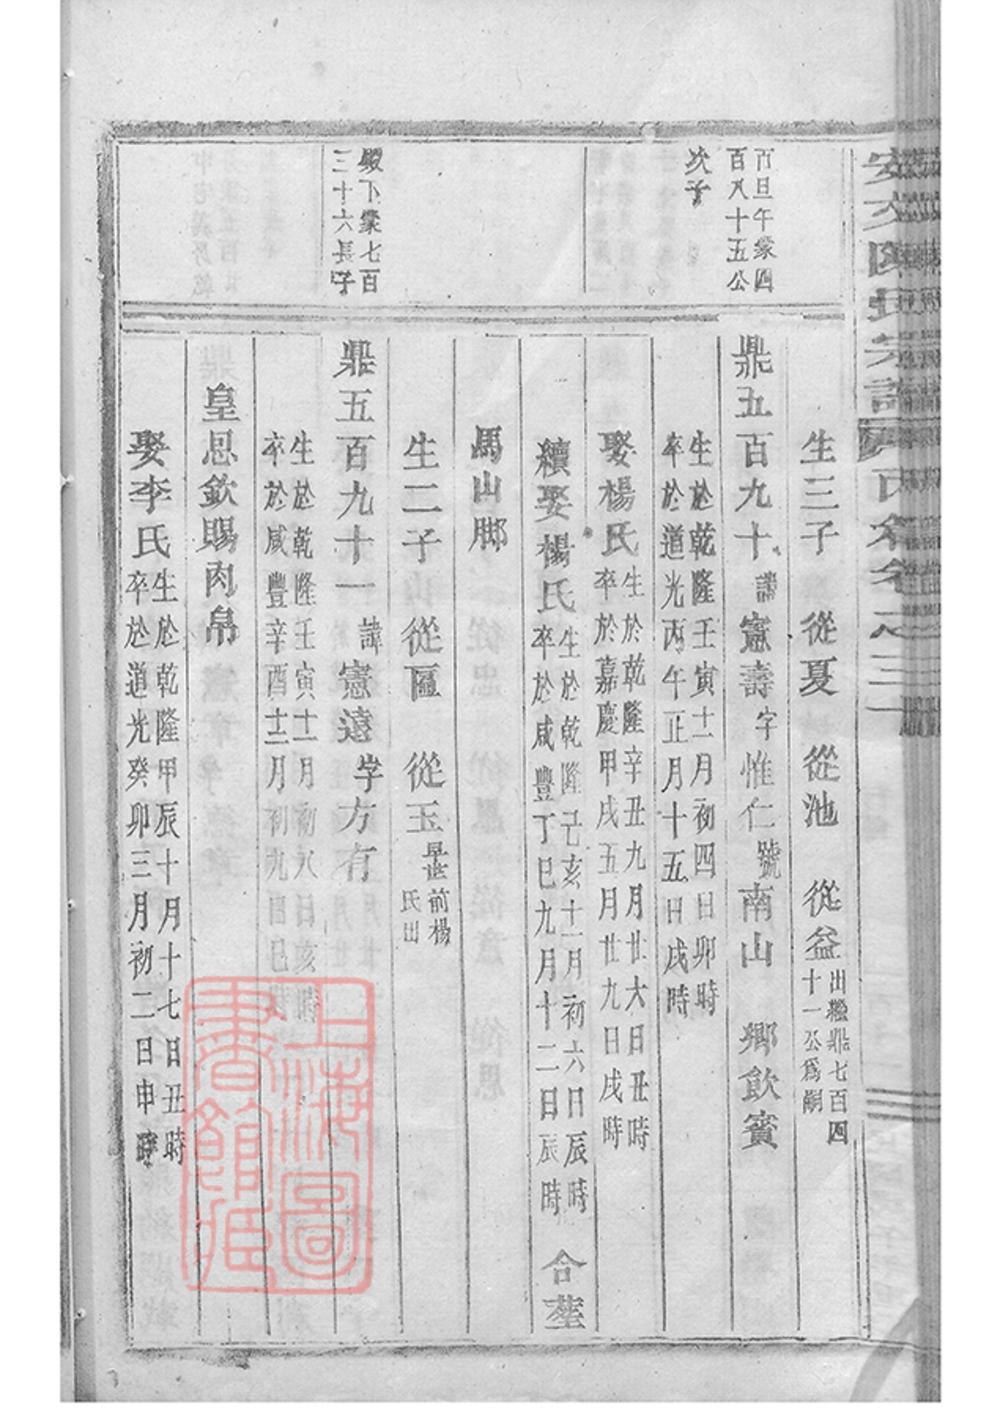 生三子　從夏　從池　從益出繼鼎七百四十一公爲嗣
百八十五公
次子
鼎五百九十諱憲壽字惟仁號南山　鄉飲賓
生於乾隆壬寅十一月初四日卯時
卒於道光丙午正月十五日戌時
娶楊氏生於乾隆辛丑九月廿六日丑時
卒於嘉慶甲戌五月廿九日戌時
續娶楊氏生於乾隆己亥十一月初六日辰時
卒於咸豐丁巳九月十二日辰時　合塟
馬山脚
生二子　從區　從玉早世前楊氏出
殿下彖七百
三十六長子
鼎五百九十一諱憲遠字方有
生於乾隆壬寅十一月初八日亥時
卒於咸豐辛酉十二月初九日巳時
皇恩欽賜肉帛
娶李氏生於乾隆甲辰十月十七日丑時
卒於道光癸卯三月初二日申時
上海圖書館藏